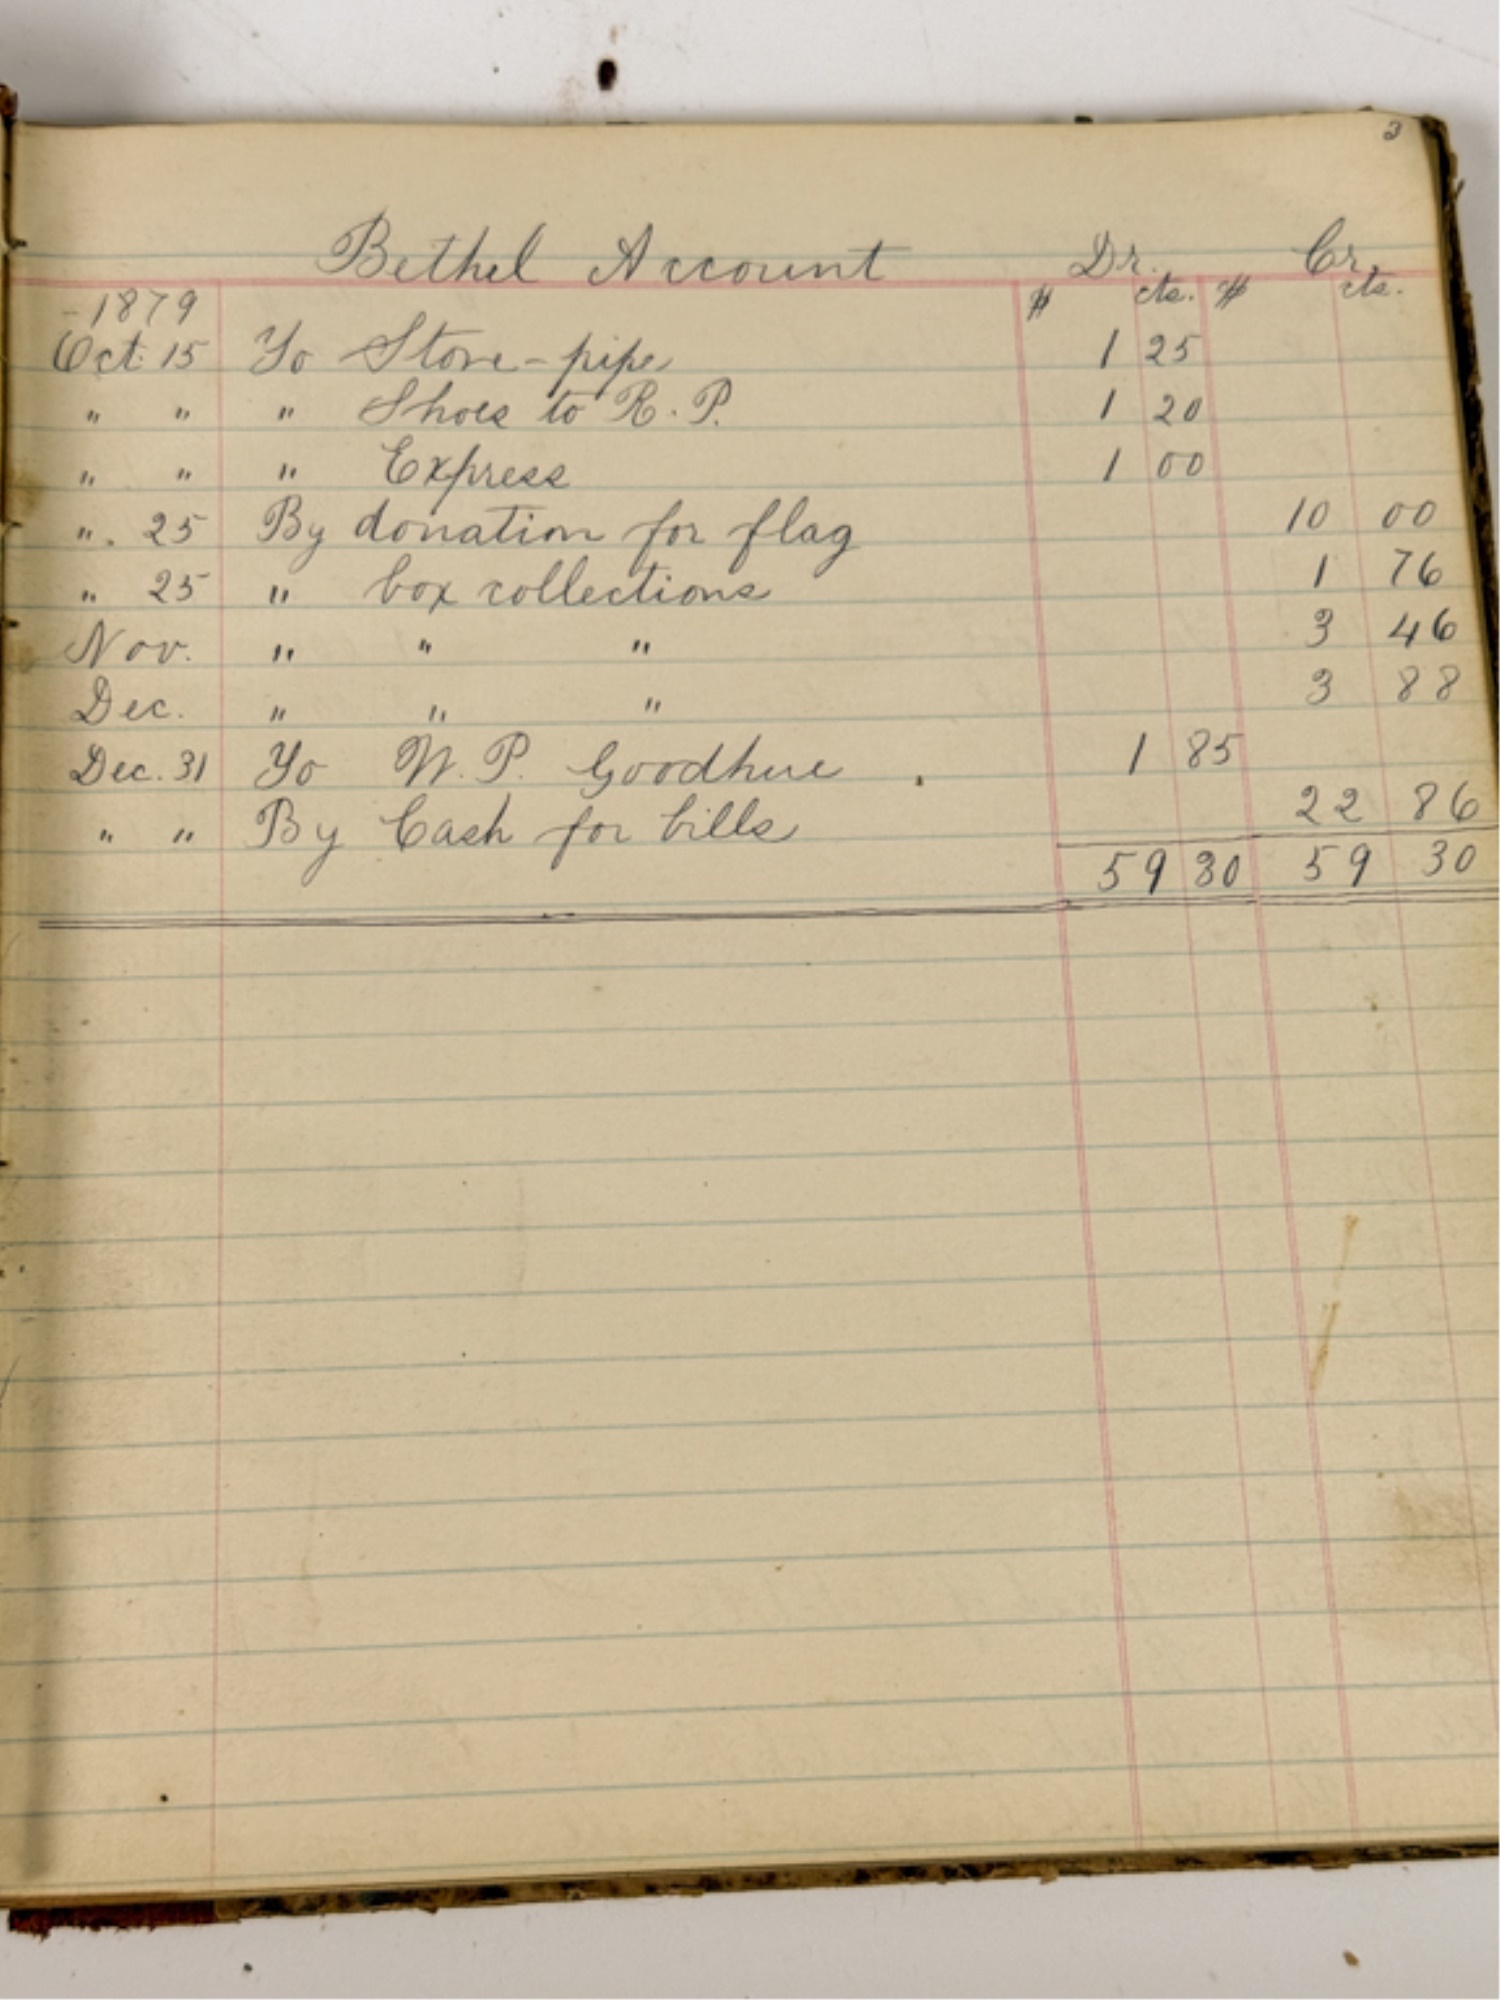 3
Bethel Account Dr. Cr.
-1879 $ cts. $ cts.
Oct. 15 To Stove-pipe 1 25
" " " Shoes to R. P. 1 20
" " " Express 1 00
". 25 By donation for flag 10 00
" 25 " box collections 1 76
Nov. " " " 3 46
Dec. " " " 3 88
Dec. 31 To W. P. Goodhue . 1 85
" " By Cash for bills 22 86
59 30 59 30